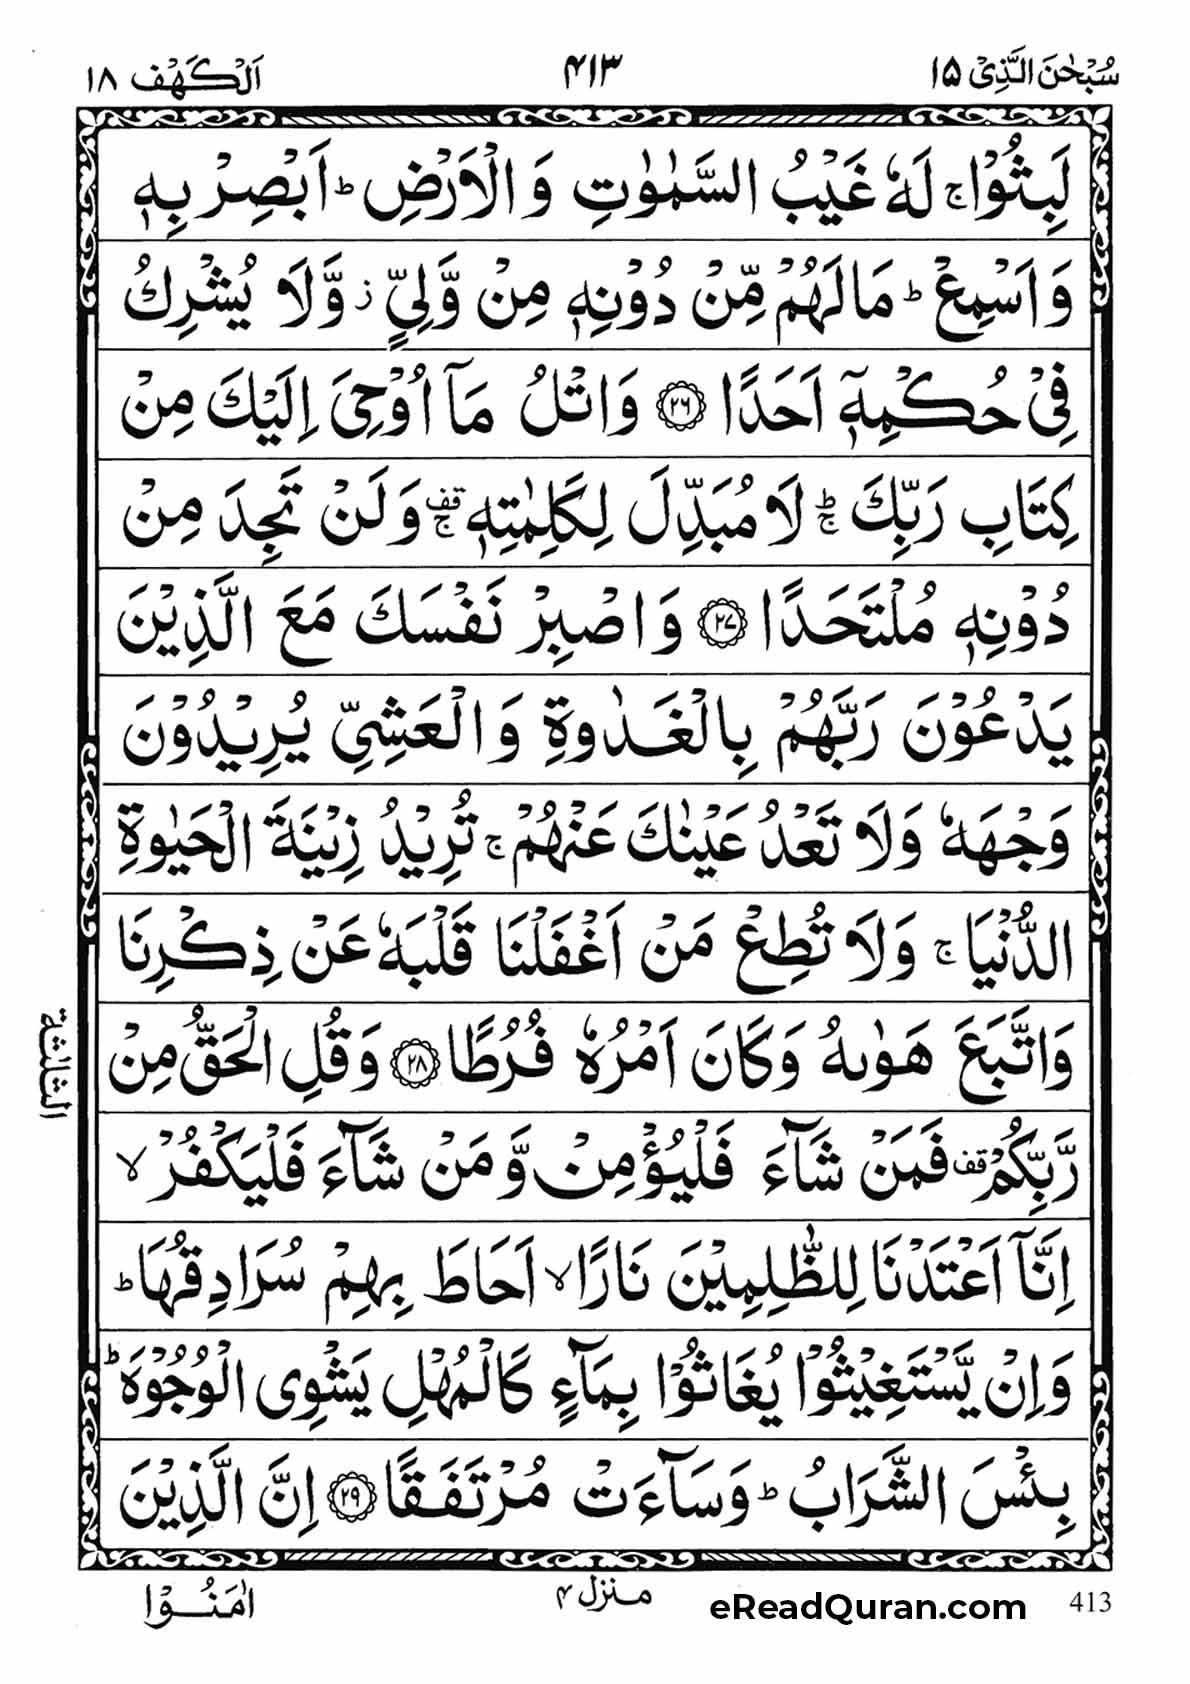 سُبْحٰنَ الَّذِیْۤ ۱۵
۴۱۳
اَلْکَهْف ۱۸
لَبِثُوْا ۚ لَهٗ غَیْبُ السَّمٰوٰتِ وَ الْاَرْضِ ؕ اَبْصِرْ بِهٖ
وَ اَسْمِعْ ؕ مَا لَهُمْ مِّنْ دُوْنِهٖ مِنْ وَّلِیٍّ ؗ وَّ لَا یُشْرِكُ
فِیْ حُكْمِهٖۤ اَحَدًا ﴿۲۶﴾ وَ اتْلُ مَاۤ اُوْحِیَ اِلَیْكَ مِنْ
كِتَابِ رَبِّكَ ؕۚ لَا مُبَدِّلَ لِكَلِمٰتِهٖ قف ۚ وَ لَنْ تَجِدَ مِنْ
دُوْنِهٖ مُلْتَحَدًا ﴿۲۷﴾ وَ اصْبِرْ نَفْسَكَ مَعَ الَّذِیْنَ
یَدْعُوْنَ رَبَّهُمْ بِالْغَدٰوةِ وَ الْعَشِیِّ یُرِیْدُوْنَ
وَجْهَهٗ وَ لَا تَعْدُ عَیْنٰكَ عَنْهُمْ ۚ تُرِیْدُ زِیْنَةَ الْحَیٰوةِ
الدُّنْیَا ۚ وَ لَا تُطِعْ مَنْ اَغْفَلْنَا قَلْبَهٗ عَنْ ذِكْرِنَا
وَ اتَّبَعَ هَوٰىهُ وَ كَانَ اَمْرُهٗ فُرُطًا ﴿۲۸﴾ وَ قُلِ الْحَقُّ مِنْ
رَّبِّكُمْ قف فَمَنْ شَآءَ فَلْیُؤْمِنْ وَّ مَنْ شَآءَ فَلْیَكْفُرْ ۙ
اِنَّاۤ اَعْتَدْنَا لِلظّٰلِمِیْنَ نَارًا ۙ اَحَاطَ بِهِمْ سُرَادِقُهَا ؕ
وَ اِنْ یَّسْتَغِیْثُوْا یُغَاثُوْا بِمَآءٍ كَالْمُهْلِ یَشْوِی الْوُجُوْهَ ؕ
بِئْسَ الشَّرَابُ ؕ وَ سَآءَتْ مُرْتَفَقًا ﴿۲۹﴾ اِنَّ الَّذِیْنَ
الثلثة
اٰمَنُوْا
منزل ۴
eReadQuran.com
413